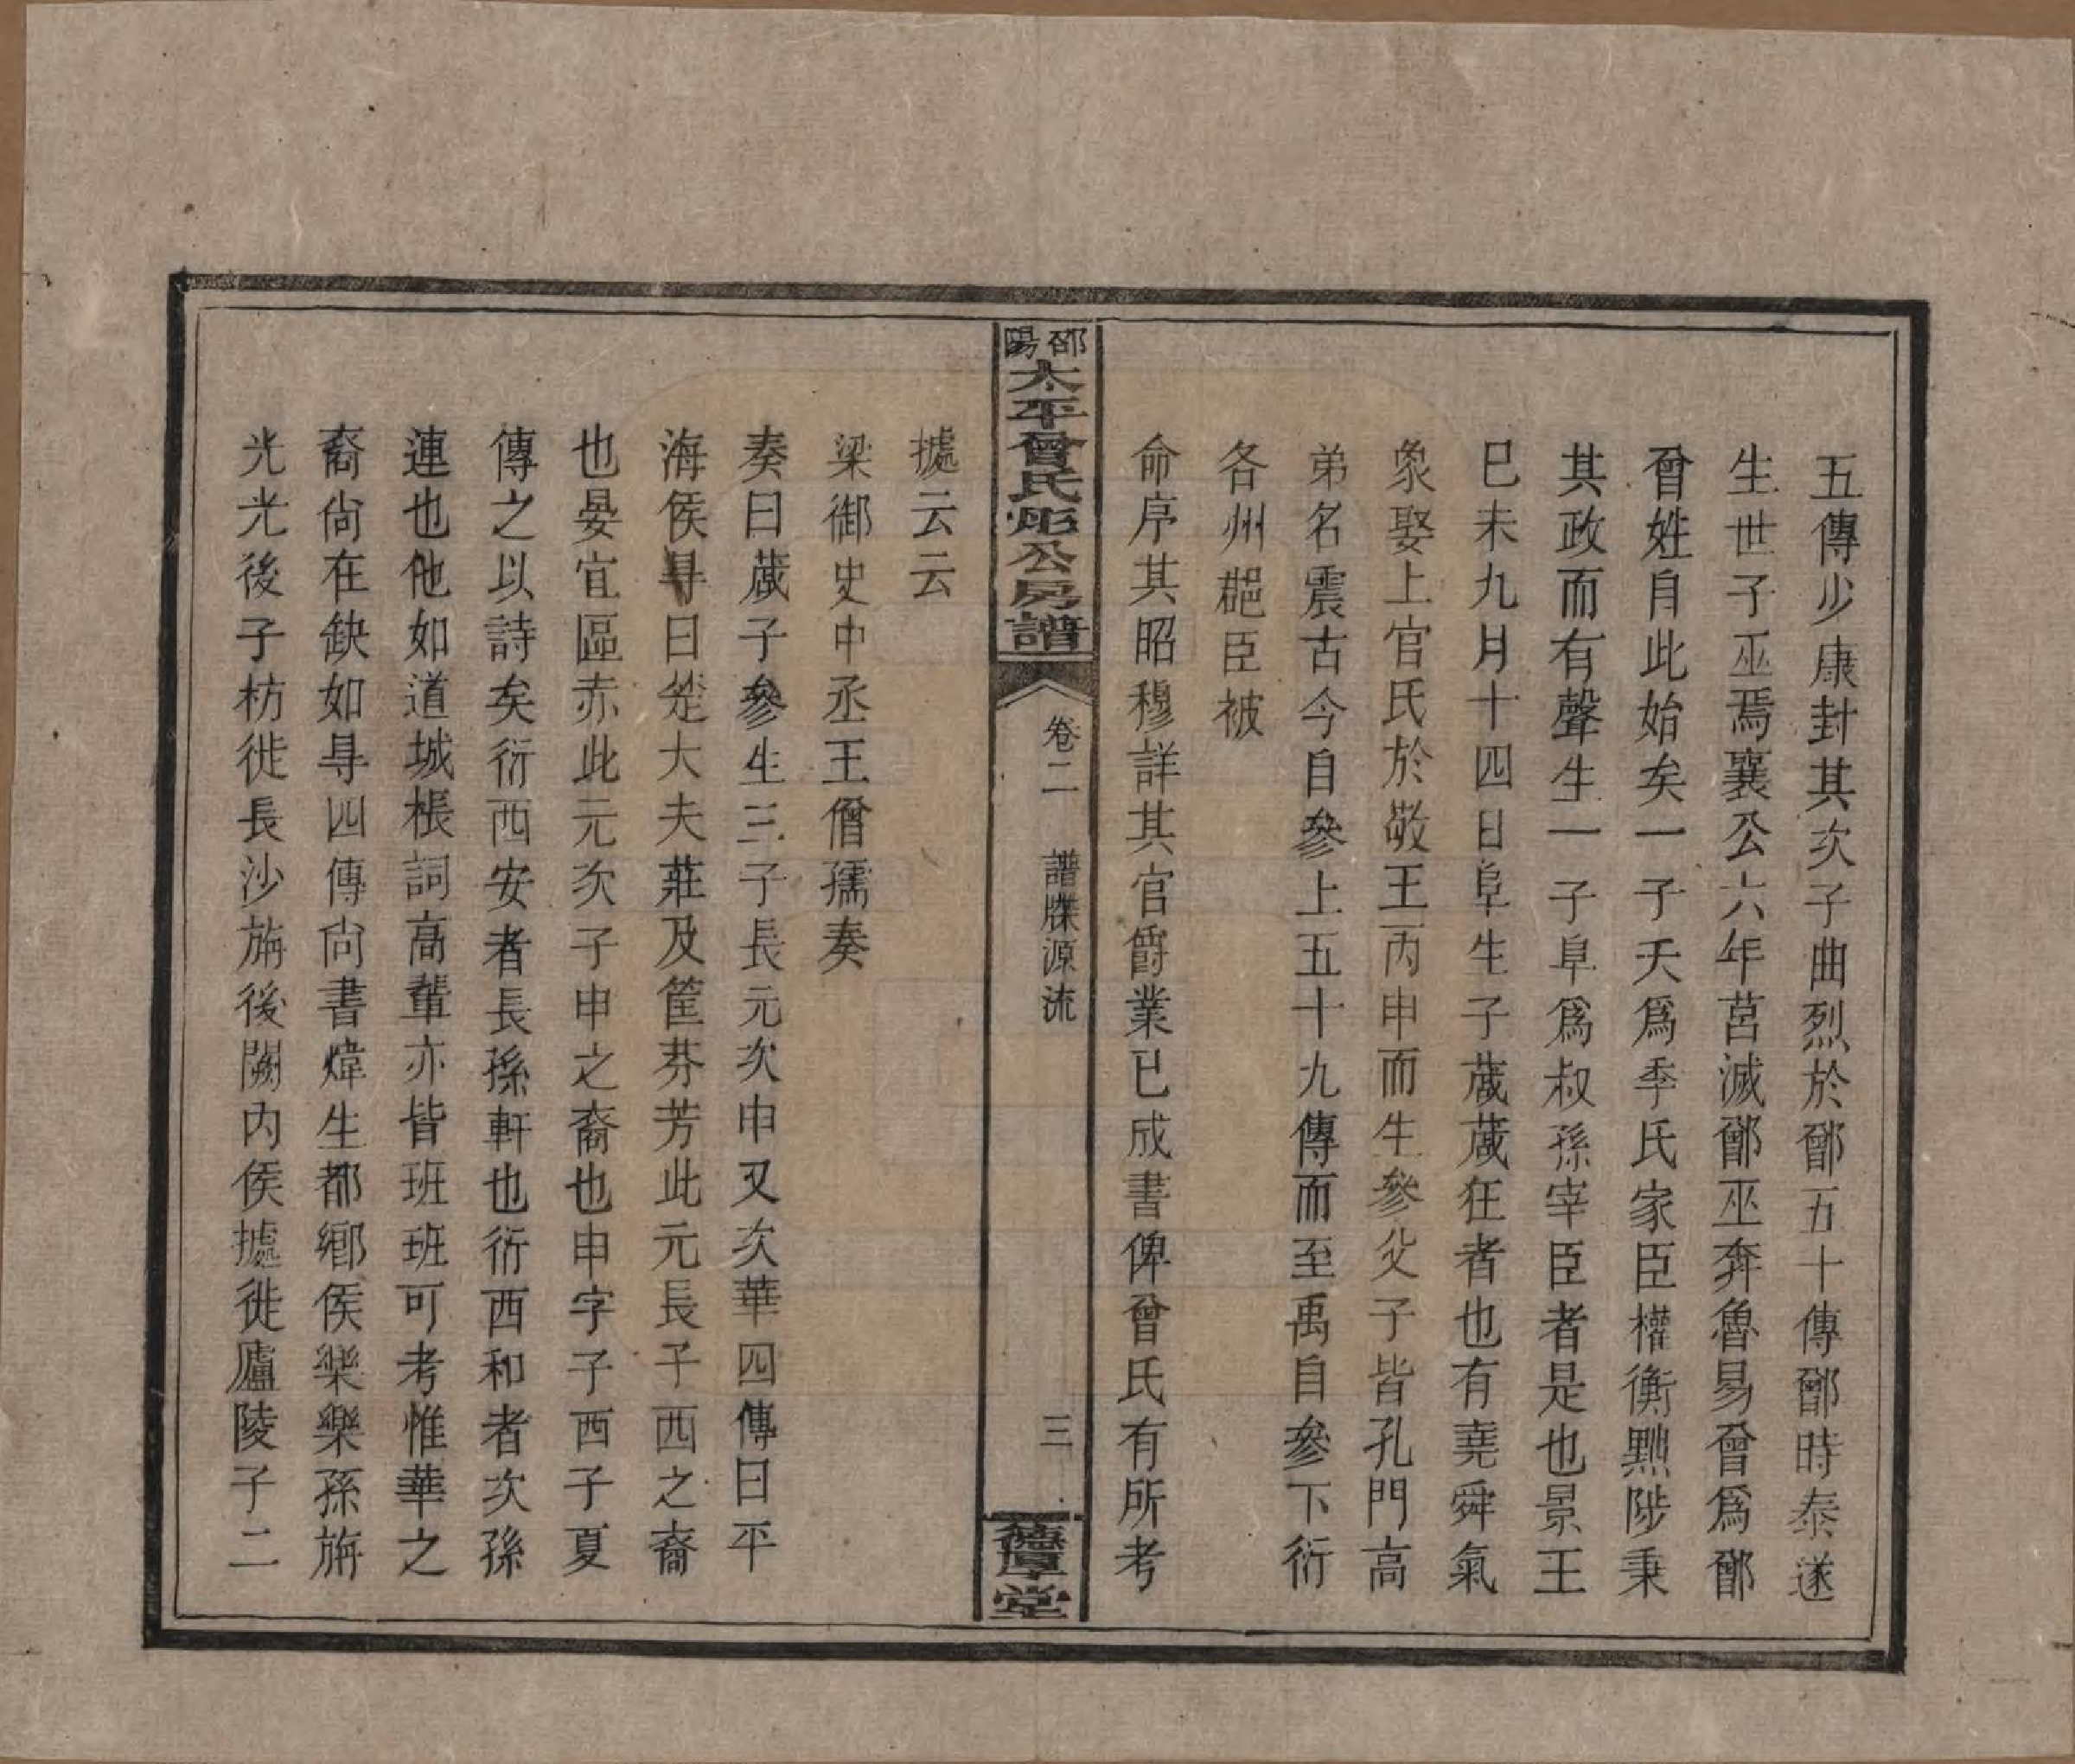 五傳少康封其次子曲烈於鄫五十傳鄫時泰遂
生世子巫焉襄公六年莒滅鄫巫奔魯易曾爲鄫
曾姓自此始矣一子夭爲季氏家臣權衡黜陟秉
其政而有聲生一子阜爲叔孫宰臣者是也景王
巳未九月十四日阜生子蒧蒧狂者也有堯舜氣
象娶上官氏於敬王丙申而生參父子皆孔門高
弟名震古今自參上五十九傳而至禹自參下衍
各州郡臣被
命序其昭穆詳其官爵業已成書俾曾氏有所考
邵陽太平曾氏彪公房譜 卷二 譜牒源流 三 德厚堂
據云云
梁御史中丞王僧孺奏
奏曰蒧子參生三子長元次申又次華四傳曰平
海侯尋曰楚大夫莊及筐芬芳此元長子西之裔
也晏宜區赤此元次子申之裔也申字子西子夏
傳之以詩矣衍西安者長孫軒也衍西和者次孫
連也他如道城根詞高輩亦皆班班可考惟華之
裔尙在缺如尋四傳尙書煒生都鄉侯樂樂孫旃
光光後子枋徙長沙旃後關內侯據徙廬陵子二